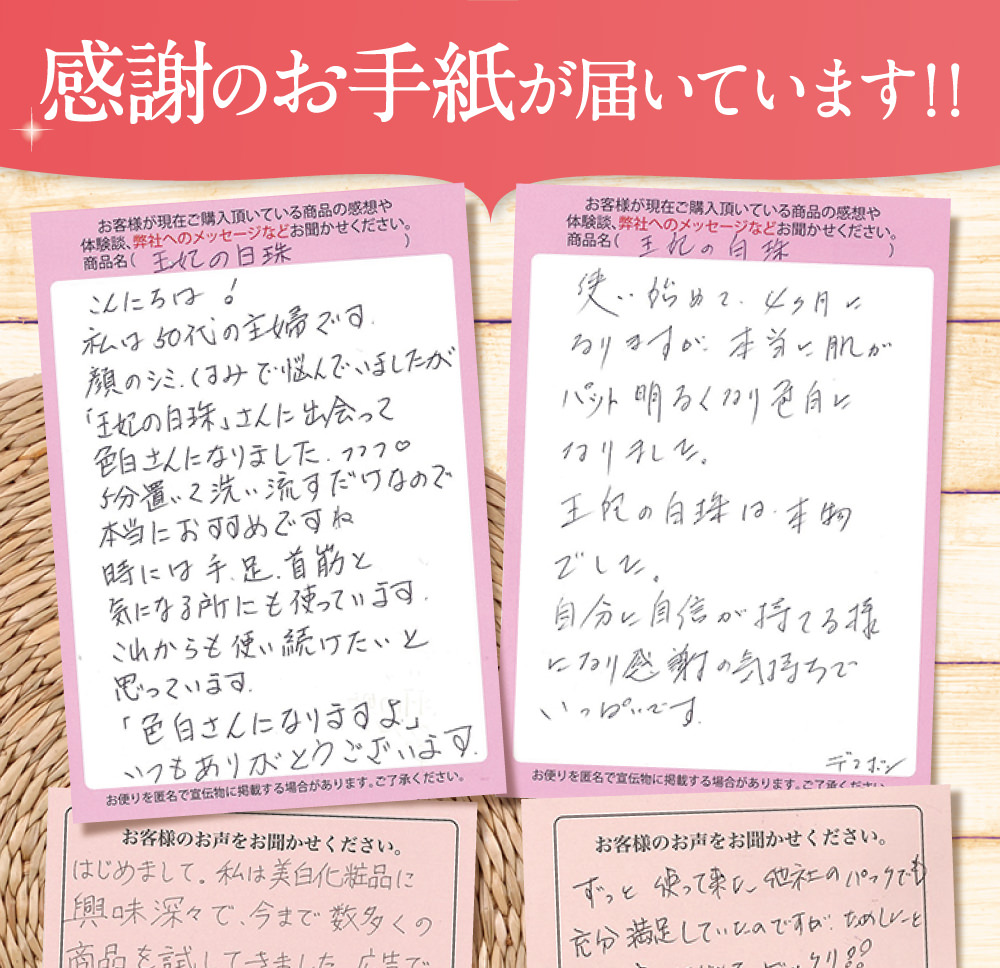 感謝のお手紙が届いています!!
お客様が現在ご購入頂いている商品の感想や
体験談、弊社へのメッセージなどお聞かせください。
商品名( 王妃の白珠 )
こんにちは!
私は50代の主婦です.
顔のシミ、くすみで悩んでいましたが
「王妃の白珠」さんに出会って
色白さんになりました.フフフ♡
5分置いて洗い流すだけなので
本当におすすめですね
時には手.足.首筋と
気になる所にも使っています.
これからも使い続けたいと
思っています.
「色白さんになりますよ」
いつもありがとうございます.
お便りを匿名で宣伝物に掲載する場合があります。ご了承ください。
お客様が現在ご購入頂いている商品の感想や
体験談、弊社へのメッセージなどお聞かせください。
商品名( 王妃の白珠 )
使い始めて、4ヶ月に
なりますが、本当に肌が
パット明るくなり色白に
なりました。
王妃の白珠は、本物
でした。
自分に自信が持てる様
になり感謝の気持ちで
いっぱいです.
デコポン
お便りを匿名で宣伝物に掲載する場合があります。ご了承ください。
お客様のお声をお聞かせください。
はじめまして。私は美白化粧品に
興味深々で、今まで数多くの
商品を試してきました。広告で
お客様のお声をお聞かせください。
ずっと使って来た他社のパックでも
充分満足していたのですが、ためしこと